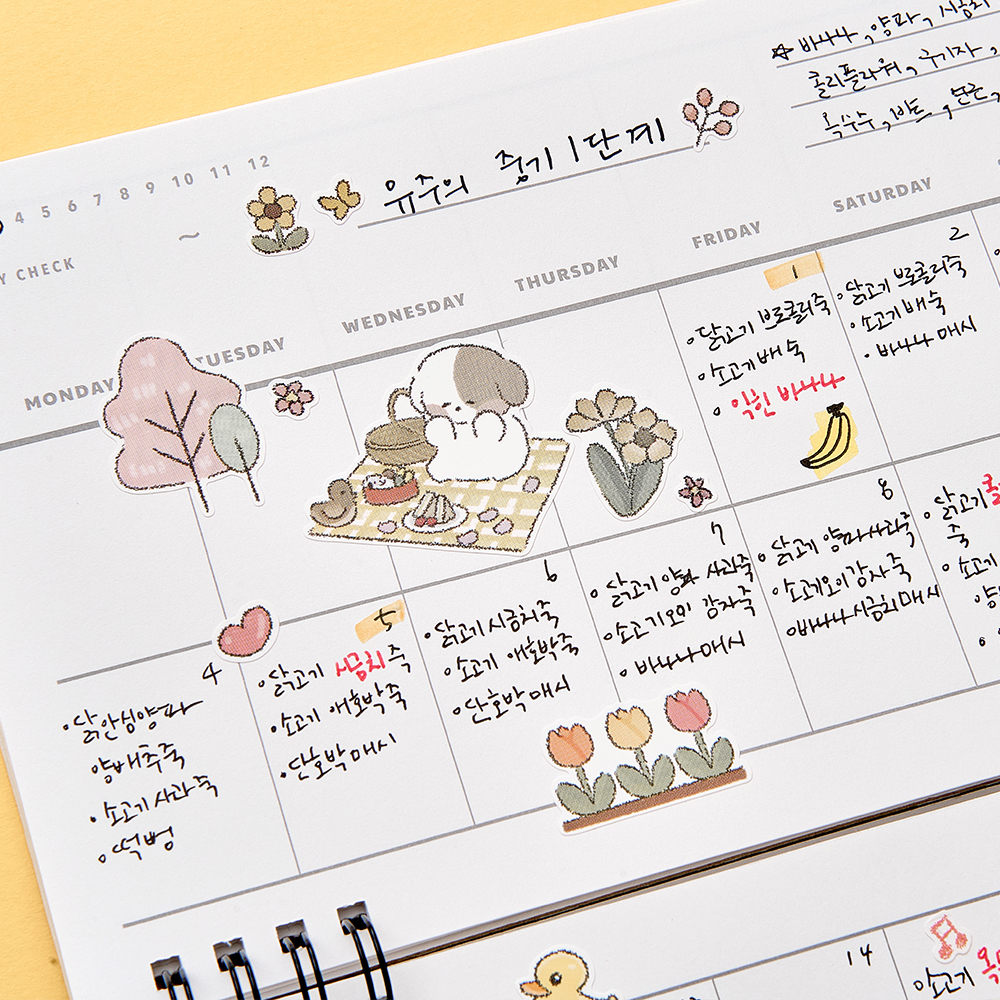 ☆ 바나나, 양파, 시금치
콜리플라워, 구기자,
옥수수, 비트,
4 5 6 7 8 9 10 11 12
유주의 중기 1단계
~
Y CHECK
MONDAY TUESDAY WEDNESDAY THURSDAY FRIDAY SATURDAY
1
• 닭고기 브로콜리죽
• 소고기배숙
• 익힌 바나나
2
• 닭고기 브로콜리죽
• 소고기배숙
• 바나나 매시
4
• 닭안심양파
양배추죽
• 소고기사과죽
• 떡뻥
5
• 닭고기 시금치죽
• 소고기 애호박죽
• 단호박매시
6
• 닭고기시금치죽
• 소고기 애호박죽
• 단호박매시
7
• 닭고기 양파 사과죽
• 소고기오이 감자죽
• 바나나매시
8
• 닭고기 양파사과죽
• 소고기오이감자죽
• 바나나시금치매시
• 닭고기
죽
• 소고기
14